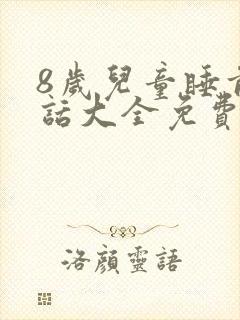 8歲兒童睡前
話大全免費
洛顏靈語